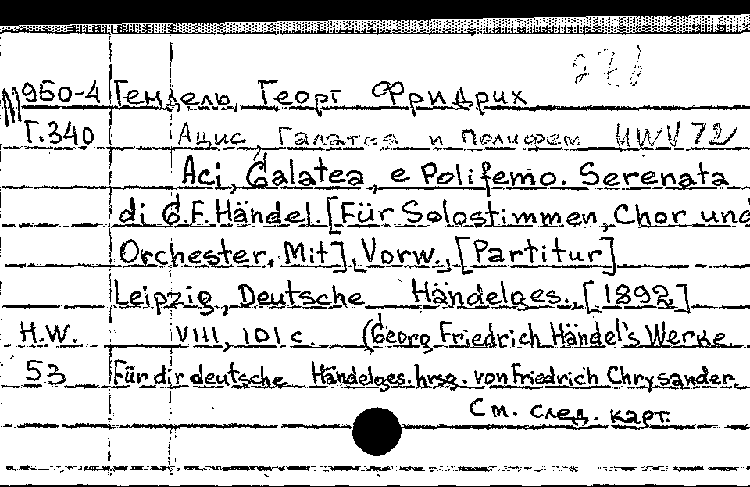 276
М960-4 Гендель, Георг Фридрих
Г.340 Ацис, Галатея и Полифем HWV 72
Aci, Galatea, e Polifemo. Serenata
di G.F. Händel. [Für Solostimmen, Chor und
Orchester, Mit], Vorw., [Partitur]
Leipzig, Deutsche Händelges., [1892]
H.W. VIII, 101 с. (Georg Friedrich Händel's Werke
53 Für dir deutsche Händelges. hrsg. von Friedrich Chrysander
См. след. карт.